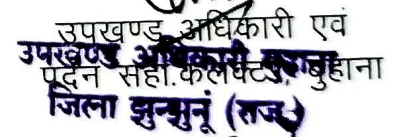 उपखण्ड अधिकारी एवं
उपखण्ड अधिकारी बुहाना
पदेन सहा.कलेक्टर, बुहाना
जिला झुन्झुनूं (राज.)